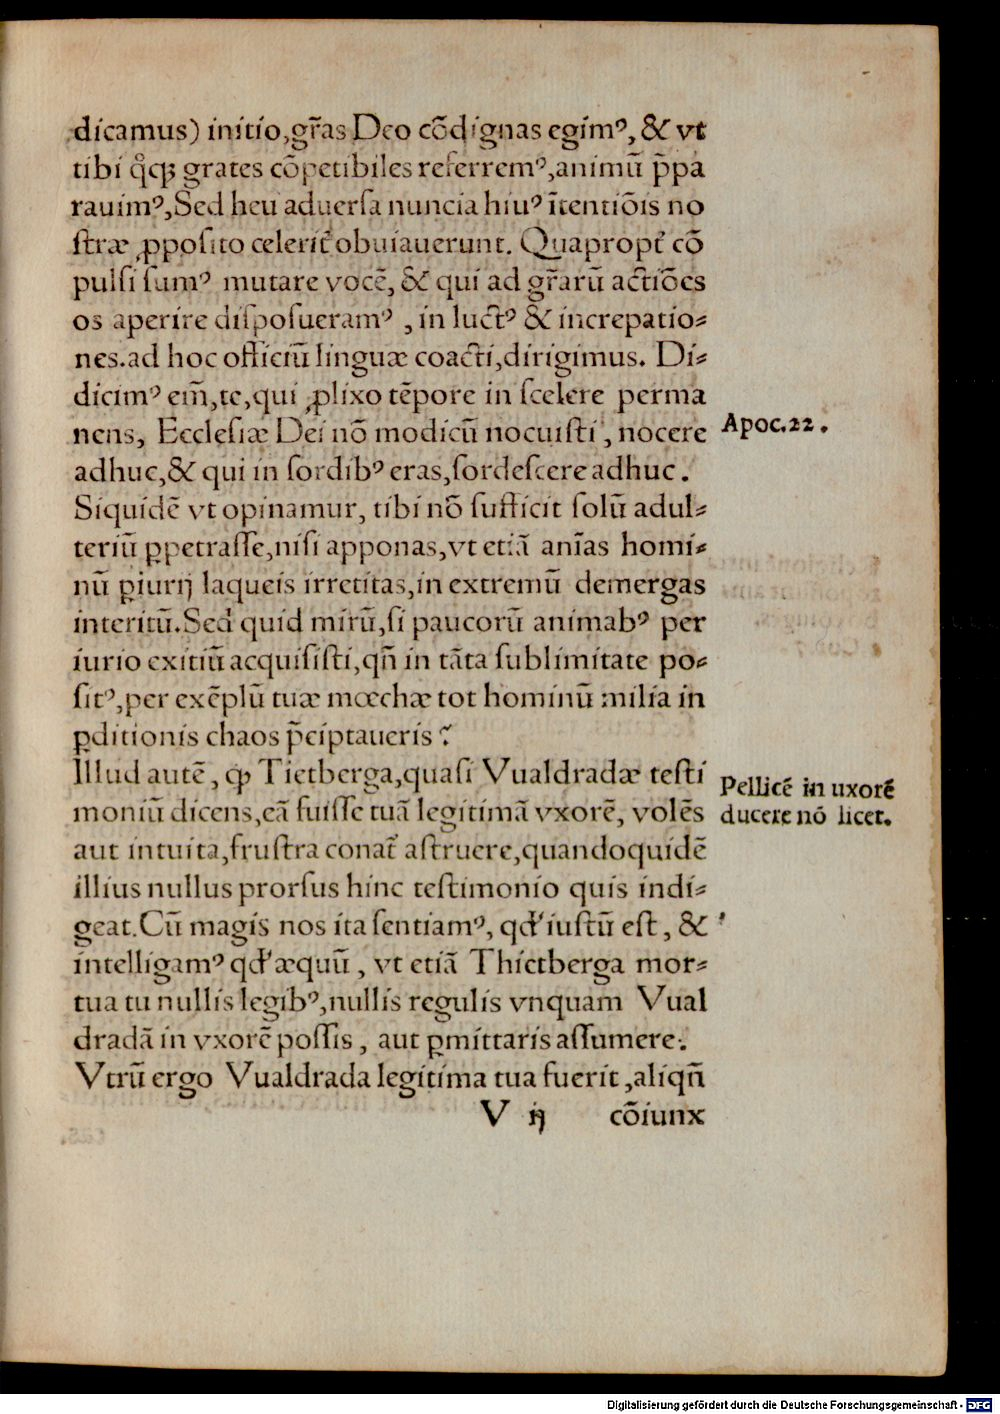 dicamus) initio,gr̃as Deo cõdignas egimꝰ, & vt
tibi qͦqꝫ grates cõpetibiles referremꝰ,animũ p̃pa
rauimꝰ,Sed heu aduerſa nuncia hiuꝰ ĩtentiõis no
ſtræ ꝓpoſito celerit̃ obuiauerunt. Quapropt̃ cõ
pulſi ſumꝰ mutare vocẽ, & qui ad gr̃arũ actiões
os aperire diſpoſueramꝰ , in luctꝰ & increpatio⸗
nes.ad hoc officiũ linguæ coacti,dirigimus. Di⸗
dicimꝰ em̃,te,qui ꝓlixo tẽpore in ſcelere perma
nens, Eccleſiæ Dei nõ modicũ nocuiſti , nocere
adhuc,& qui in ſordibꝰ eras,ſordeſcere adhuc.
Siquidẽ vt opinamur, tibi nõ ſufficit ſolũ adul⸗
teriũ ꝑpetraſſe,niſi apponas,vt etiã anĩas homi⸗
nũ ꝑiurij laqueis irretitas,in extremũ demergas
interitũ.Sed quid mirũ,ſi paucorũ animabꝰ per
iurio exitiũ acquiſiſti,qñ in tãta ſublimitate po⸗
ſitꝰ,per exẽplũ tuæ mœchæ tot hominũ milia in
ꝑditionis chaos p̃cipitaueris ?
Illud autẽ , ꝙ Tietberga,quaſi Vualdradæ teſti
moniũ dicens,eã fuiſſe tuã legitimã vxorẽ, volẽs
aut intuita,fruſtra conat̃ aſtruere,quandoquidẽ
illius nullus prorſus hinc teſtimonio quis indi⸗
geat.Cũ magis nos ita ſentiamꝰ, qđ iuſtũ eſt , &
intelligamꝰ qđ æquũ , vt etiã Thietberga mor⸗
tua tu nullis legibꝰ,nullis regulis vnquam Vual
dradã in vxorẽ poſſis , aut ꝑmittaris aſſumere.
Vtrũ ergo Vualdrada legitima tua fuerit ,aliqñ
V ij cõiunx
Apoc.22.
Pellicẽ in uxorẽ
ducere nõ licet.
Digitalisierung gefördert durch die Deutsche Forschungsgemeinschaft - DFG